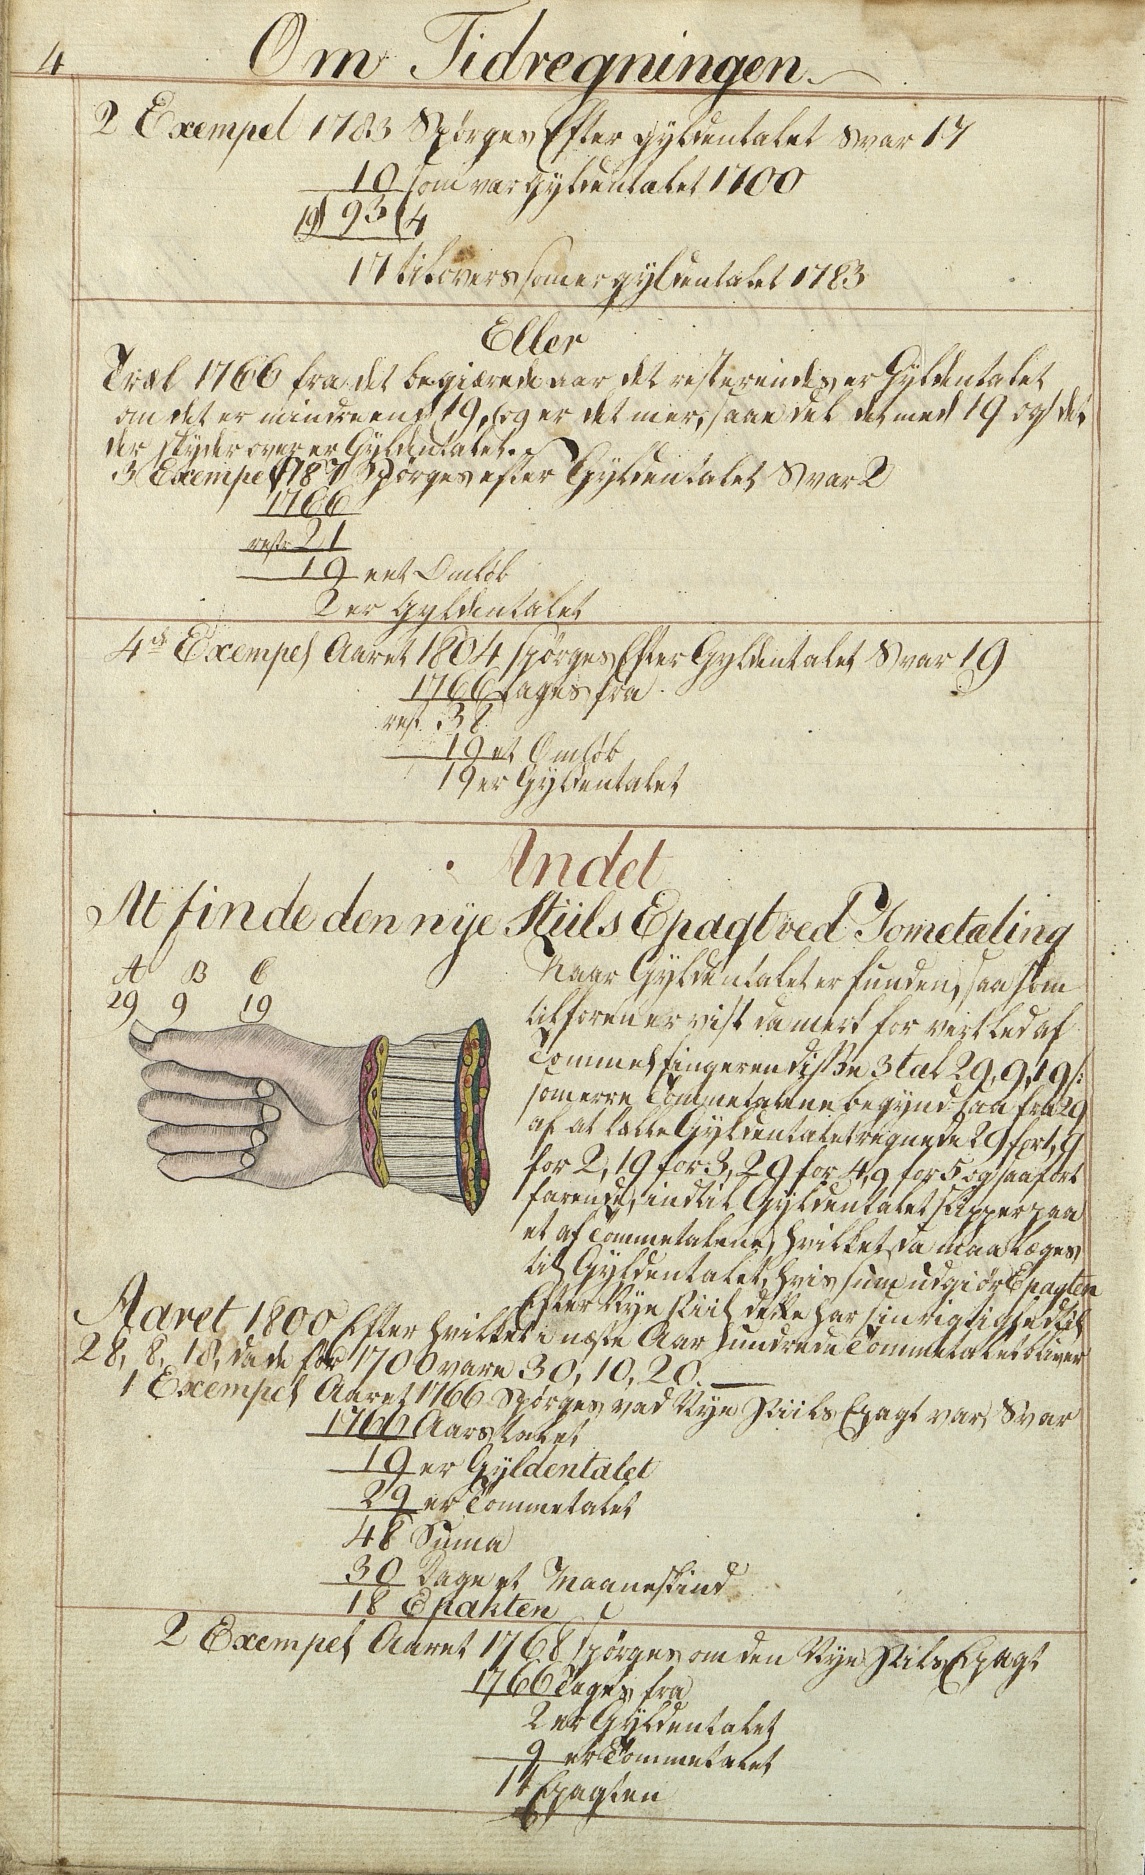 4 Om Tidregningen
2 Exempel 1783 Spørges Efter gyldentalet Svar 17
10 som var Gyldentalet 1700
19) 93 (4
17 tilovers som er gyldentalet 1783
Eller
Træk 1766 fra det begiærede aar det resterendes er Gyldentalet
om det er mindre end 19, og er det mer, saa del det med 19 og det
der skyder over er Gyldentalet.
3 Exempel 1787 Spørges efter Gyldentalet Svar 2
1766
rest 21
19 eet Omløb
2 er Gyldentalet
4de Exempel Aaret 1804 spørges Efter Gyldentalet Svar 19
1766 tages fra
rest 38
19 et Omløb
19 er Gyldentalet
Andet
At finde den nye Stiils Epagt ved Tometæling
A B C
29 9 19
Naar Gyldentalet er funden, saa som
tilforen er vist da merk for vert led af
Tommelfingeren disse 3 tal 29, 9, 19 /:
som erre Tommetalene begynd saa fra 29
af at tælle Gyldentalet regnede 29 for 1, 9
for 2, 19 for 3, 29 for 4, 9 for 5 og saa fort
farende, indtil Gyldentalet slipper paa
et af Tommetalene, hvilket da maa læges
til Gyldentalet, hvis sum udgiør Epagten
Efter Nye Stiil dette har sin rigtighed til
Aaret 1800 Efter hvilket i næste Aar hundrede Tommetalet bliver
28, 8, 18, da de før 1700 vare 30, 10, 20.
1 Exempel Aaret 1766 Spørges vad Nye Stiils Epagt var, Svar
1766 Aars talet
19 er Gyldentalet
29 er Tommetalet
48 Suma
30 Dage et Maaneskind
18 Epakten
2 Exempel Aaret 1768 spørges om den Nye Stils Epagt
1766 Tages fra
2 er Gyldentalet
9 er Tommetalet
11 Epagten